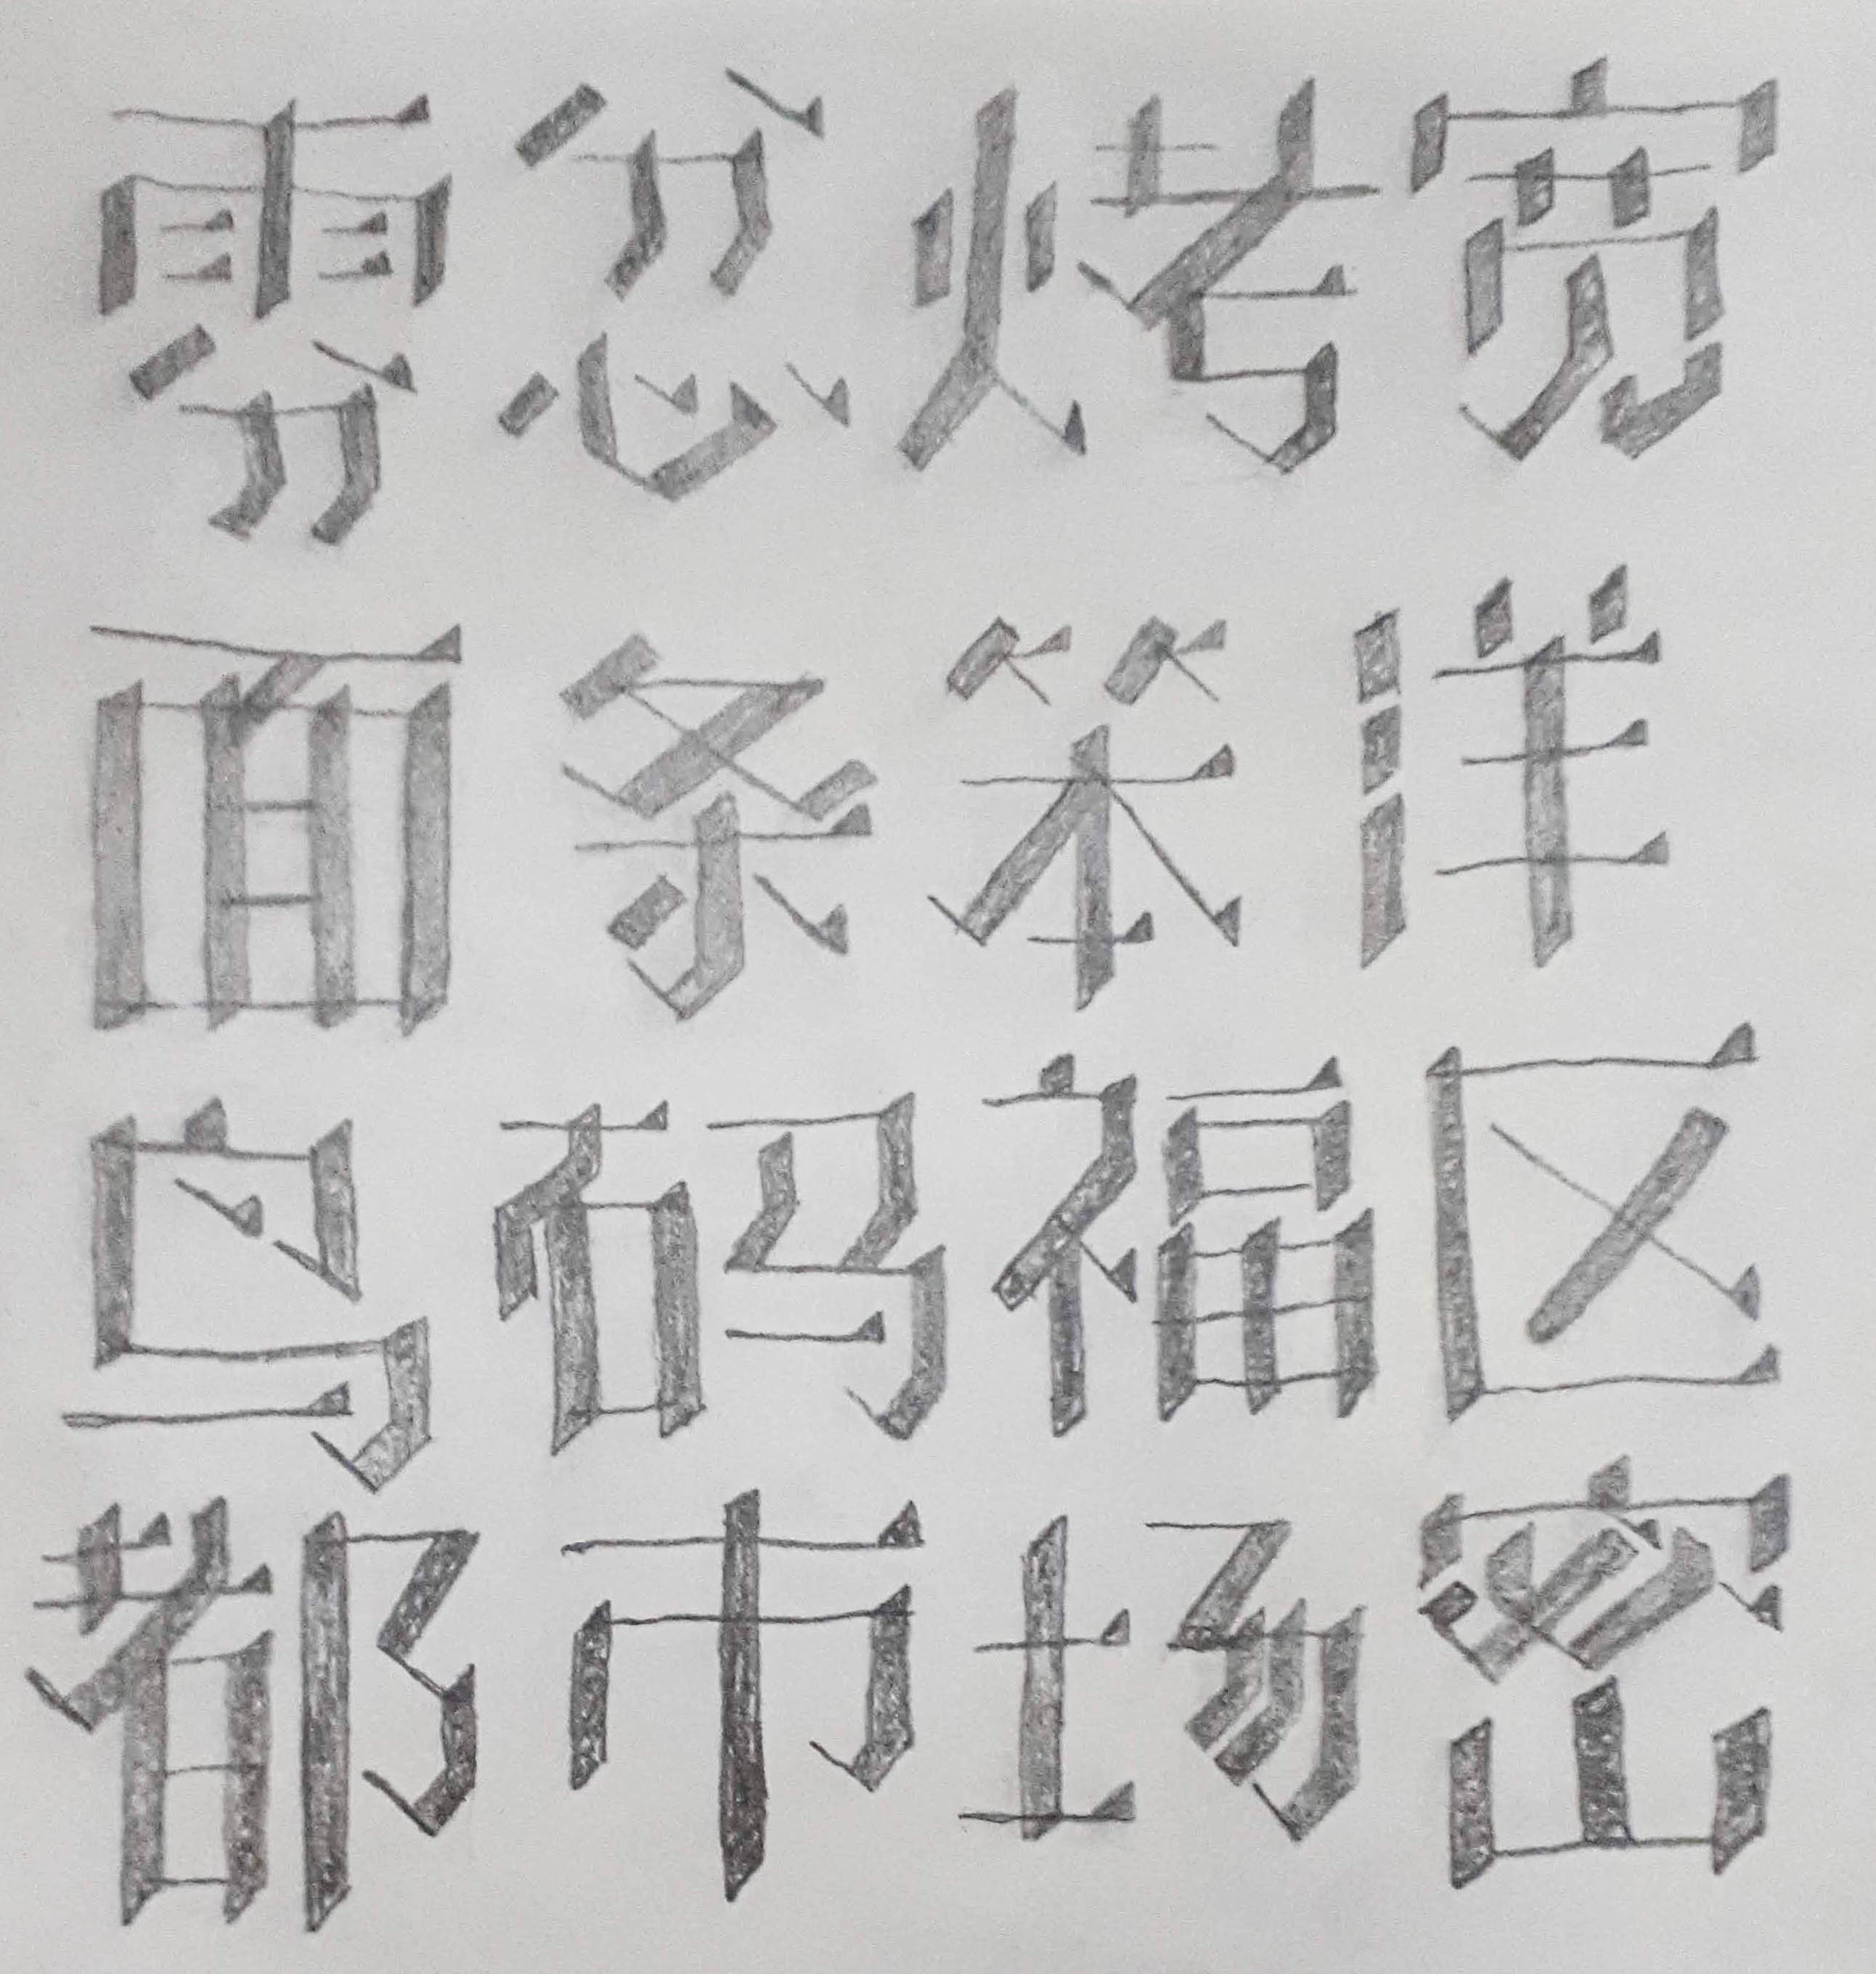 雰忿烤宽
面条笨洋
鸟码福区
都市场密